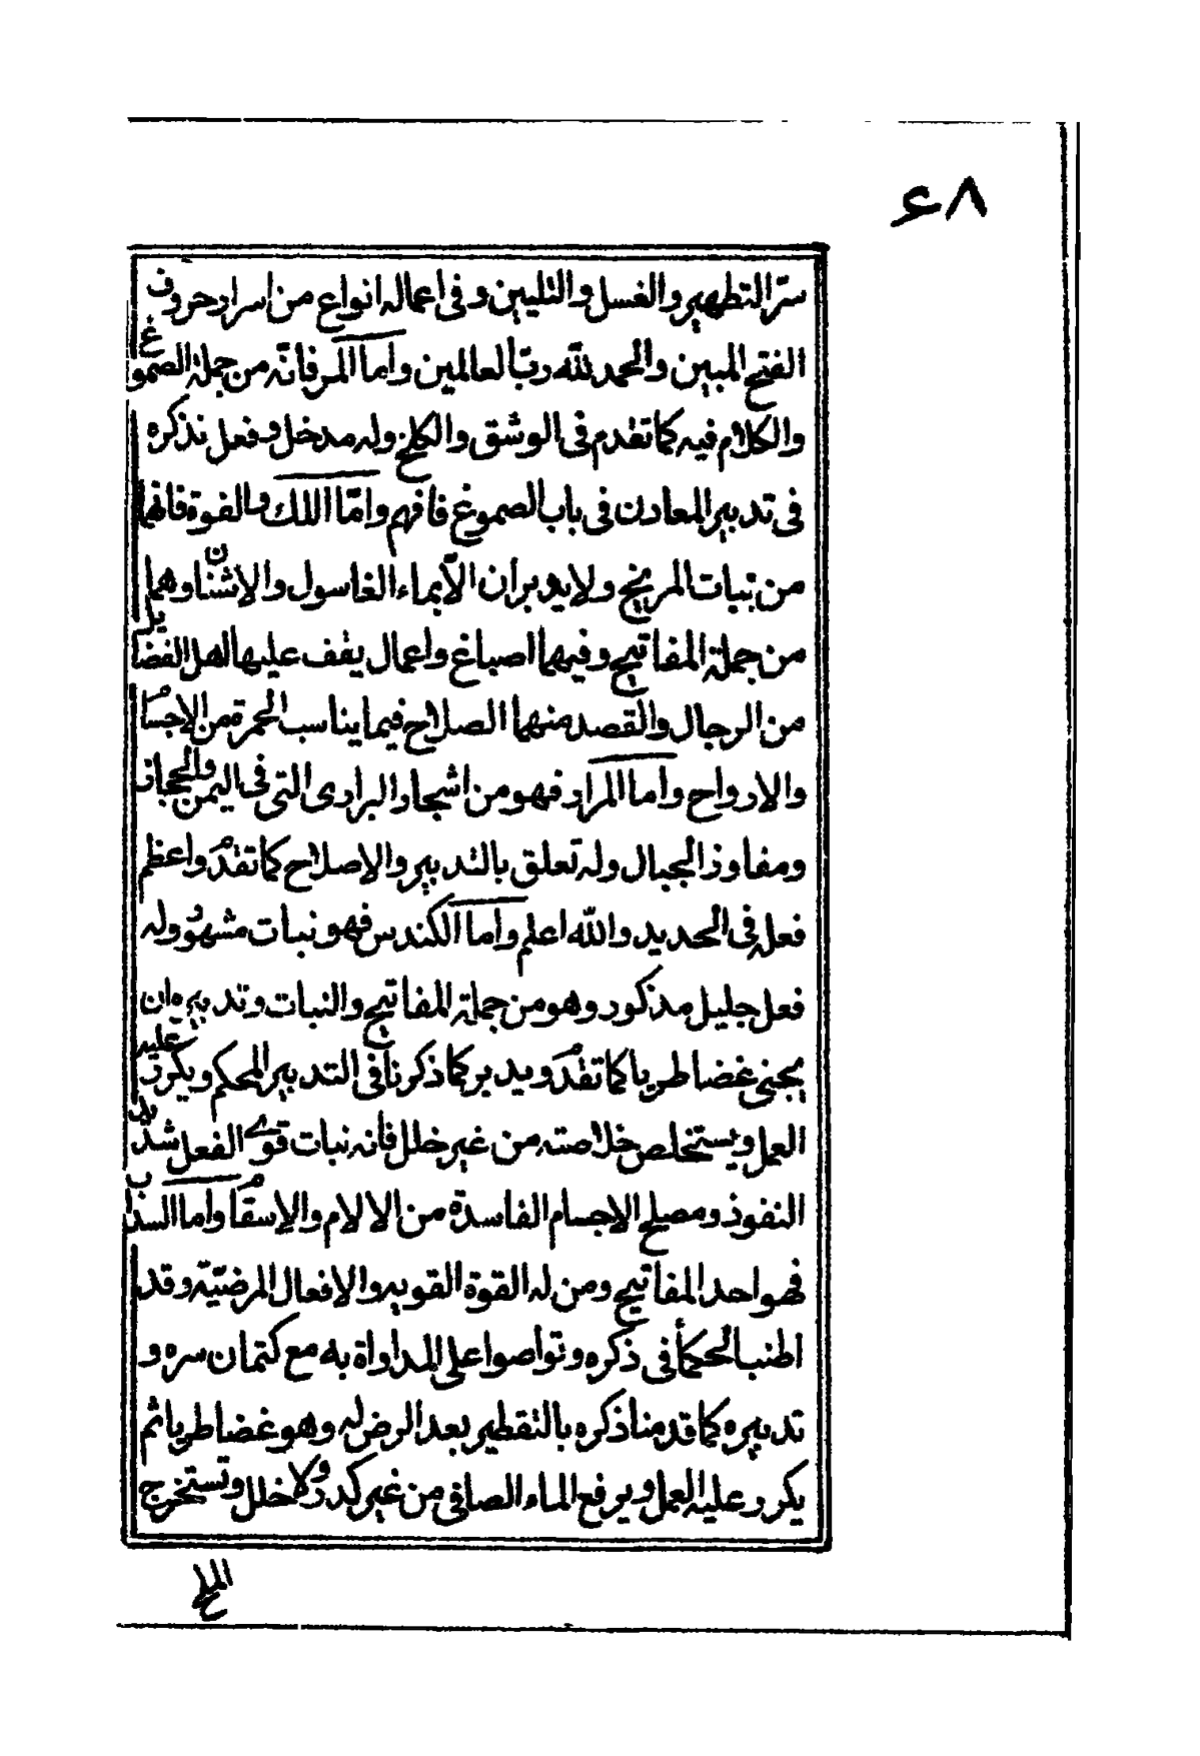 ٦٨
سرّ التطهير والغسل والتليين وفى اعماله انواع من اسرار حروف
الفتح المبين والحمد لله ربّ العالمين واما المر فانّه من جملة الصموغ
والكلام فيه كما تقدم فى الوشق والكلخ وله مدخل وفعل نذكره
فى تدبير المعادن فى باب الصموغ فافهم وامّا اللك والفوة فانهما
من نبات المريخ ولا يدبران الّا بماء الغاسول والاشنان وهما
من جملة المفاتيح وفيهما اصباغ واعمال يقف عليها اهل الفضايل
من الرجال والقصد منهما الصلاح فيما يناسب الحمرة من الاجسام
والارواح واما المرار فهو من اشجار البرارى التى فى اليمن والحجاز
ومفاوز الجبال وله تعلق بالتدبير والاصلاح كما تقدم واعظم
فعله فى الحديد والله اعلم واما الكندس فهو نبات مشهور وله
فعل جليل مذكور وهو من جملة المفاتيح والنبات وتدبيره ان
يجنى غضا طريا كما تقدم ويدبر كما ذكرنا فى التدبير المحكم ويكرر عليه
العمل ويستخلص خلاصته من غير خلل فانه نبات قوى الفعل شديد
النفوذ ومصلح الاجسام الفاسدة من الالام والاسقام واما السذاب
فهو احد المفاتيح ومن له القوة القويه والافعال المرضيّة وقد
اطنب الحكمأ فى ذكره وتواصوا على المداواة به مع كتمان سره و
تدبيره كما قدمنا ذكره بالتقطير بعد الرض له وهو غضا طريا ثم
يكرر عليه العمل ويرفع الماء الصافى من غير كدر ولا خلل وتستخرج
الملح